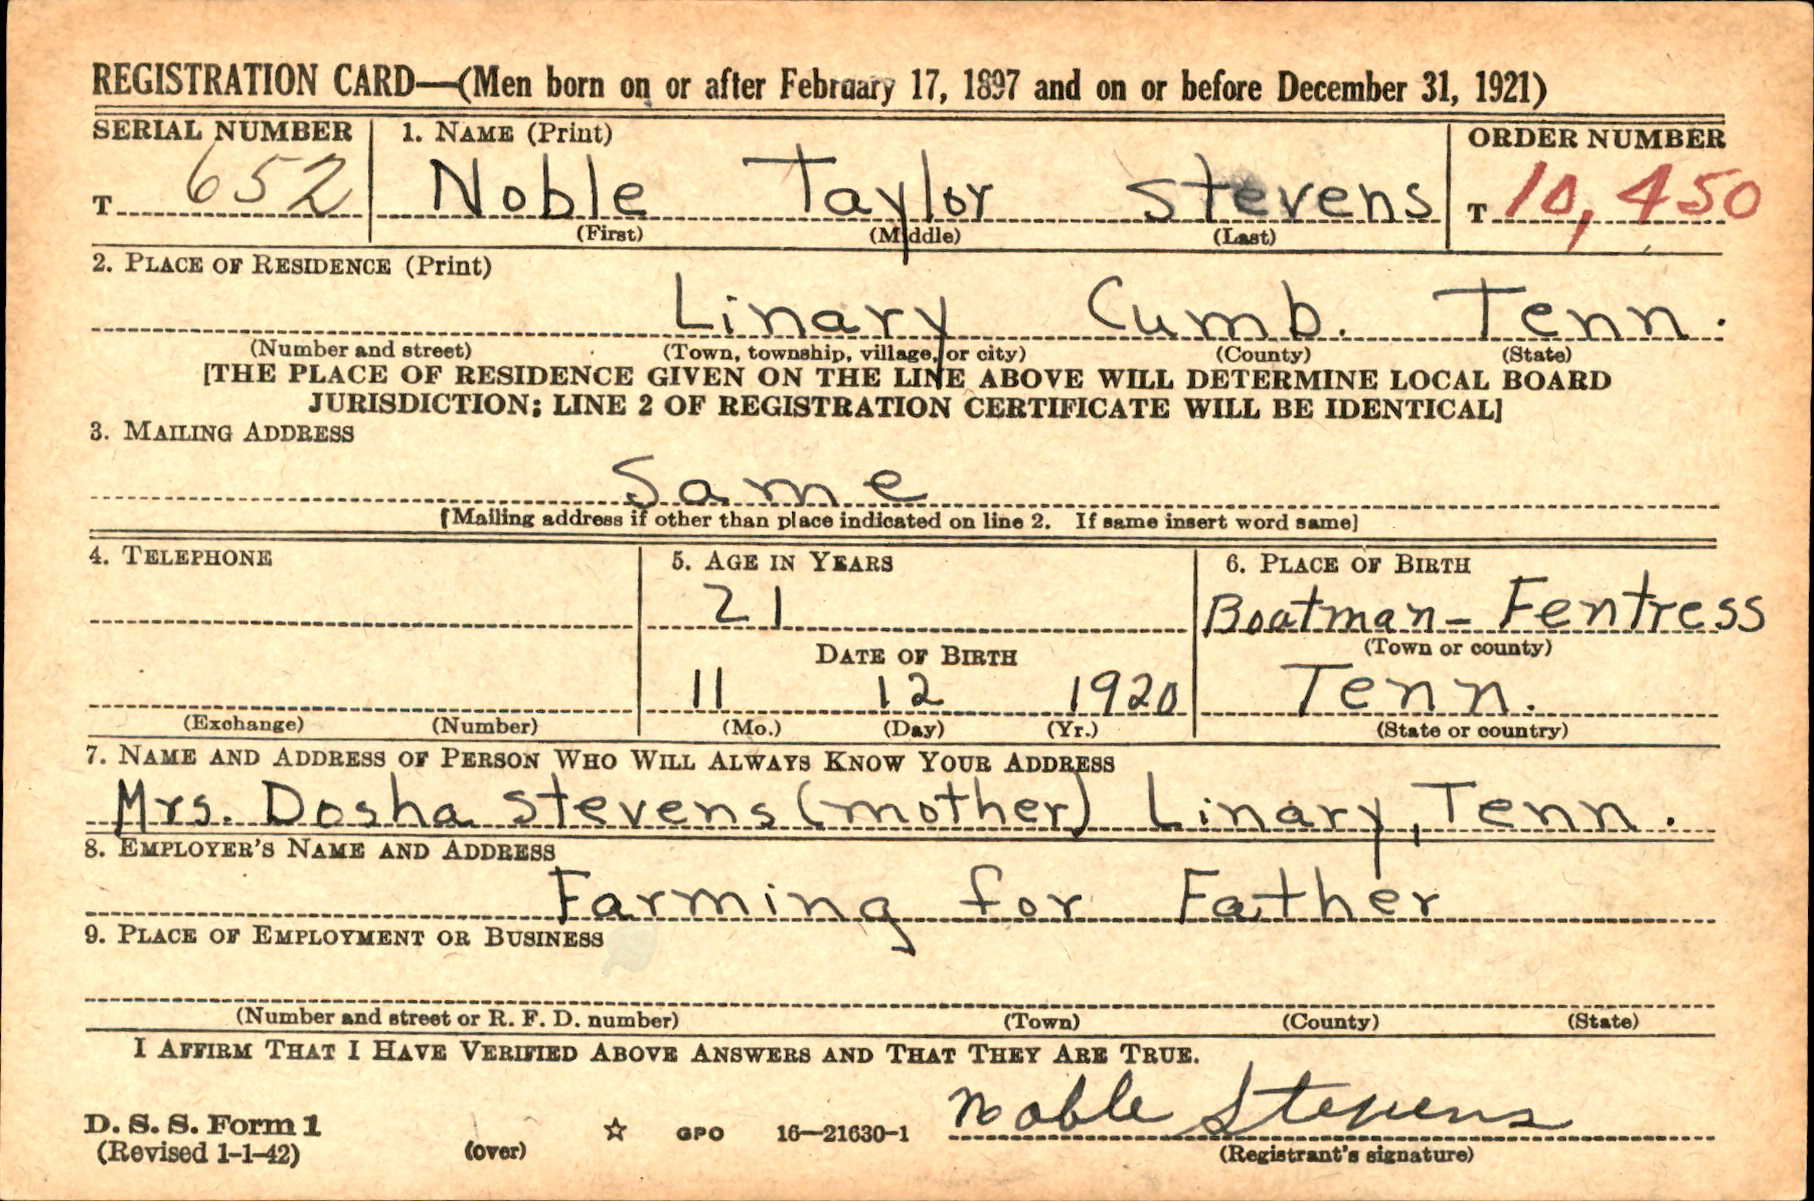 REGISTRATION CARD—(Men born on or after February 17, 1897 and on or before December 31, 1921)
SERIAL NUMBER 1. NAME (Print) ORDER NUMBER
T 652 Noble Taylor Stevens T 10,450
(First) (Middle) (Last)
2. PLACE OF RESIDENCE (Print)
Linary Cumb. Tenn.
(Number and street) (Town, township, village, or city) (County) (State)
[THE PLACE OF RESIDENCE GIVEN ON THE LINE ABOVE WILL DETERMINE LOCAL BOARD
JURISDICTION; LINE 2 OF REGISTRATION CERTIFICATE WILL BE IDENTICAL]
3. MAILING ADDRESS
Same
[Mailing address if other than place indicated on line 2. If same insert word same]
4. TELEPHONE 5. AGE IN YEARS 6. PLACE OF BIRTH
21 Boatman - Fentress
(Town or county)
DATE OF BIRTH
11 12 1920 Tenn.
(Exchange) (Number) (Mo.) (Day) (Yr.) (State or country)
7. NAME AND ADDRESS OF PERSON WHO WILL ALWAYS KNOW YOUR ADDRESS
Mrs. Dosha Stevens (mother) Linary, Tenn.
8. EMPLOYER'S NAME AND ADDRESS
Farming for Father
9. PLACE OF EMPLOYMENT OR BUSINESS
(Number and street or R. F. D. number) (Town) (County) (State)
I AFFIRM THAT I HAVE VERIFIED ABOVE ANSWERS AND THAT THEY ARE TRUE.
Noble Stevens
D. S. S. Form 1
(Revised 1-1-42) (over) ☆ GPO 16—21630-1 (Registrant's signature)